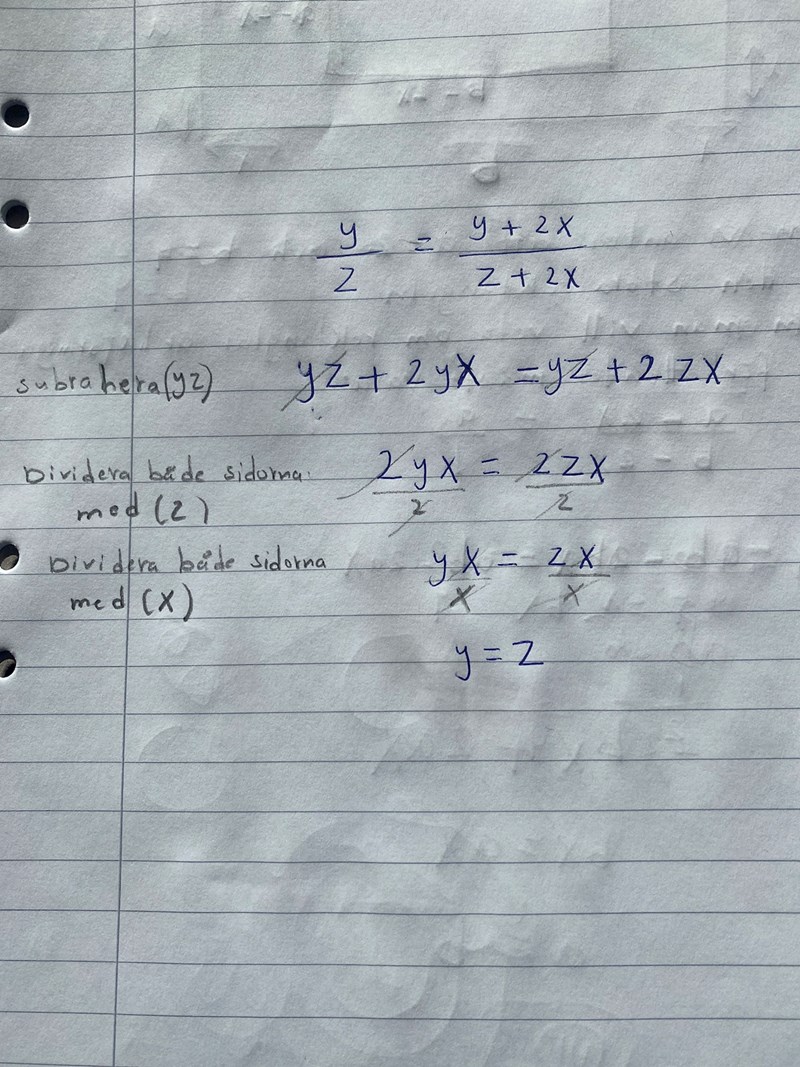 y/z = (y + 2x)/(z + 2x)
subrahera(yz) yz + 2yx = yz + 2zx
Dividera både sidorna. 2yx/2 = 2zx/2
med (2)
Dividera både sidorna yx/x = zx/x
med (x)
y = z